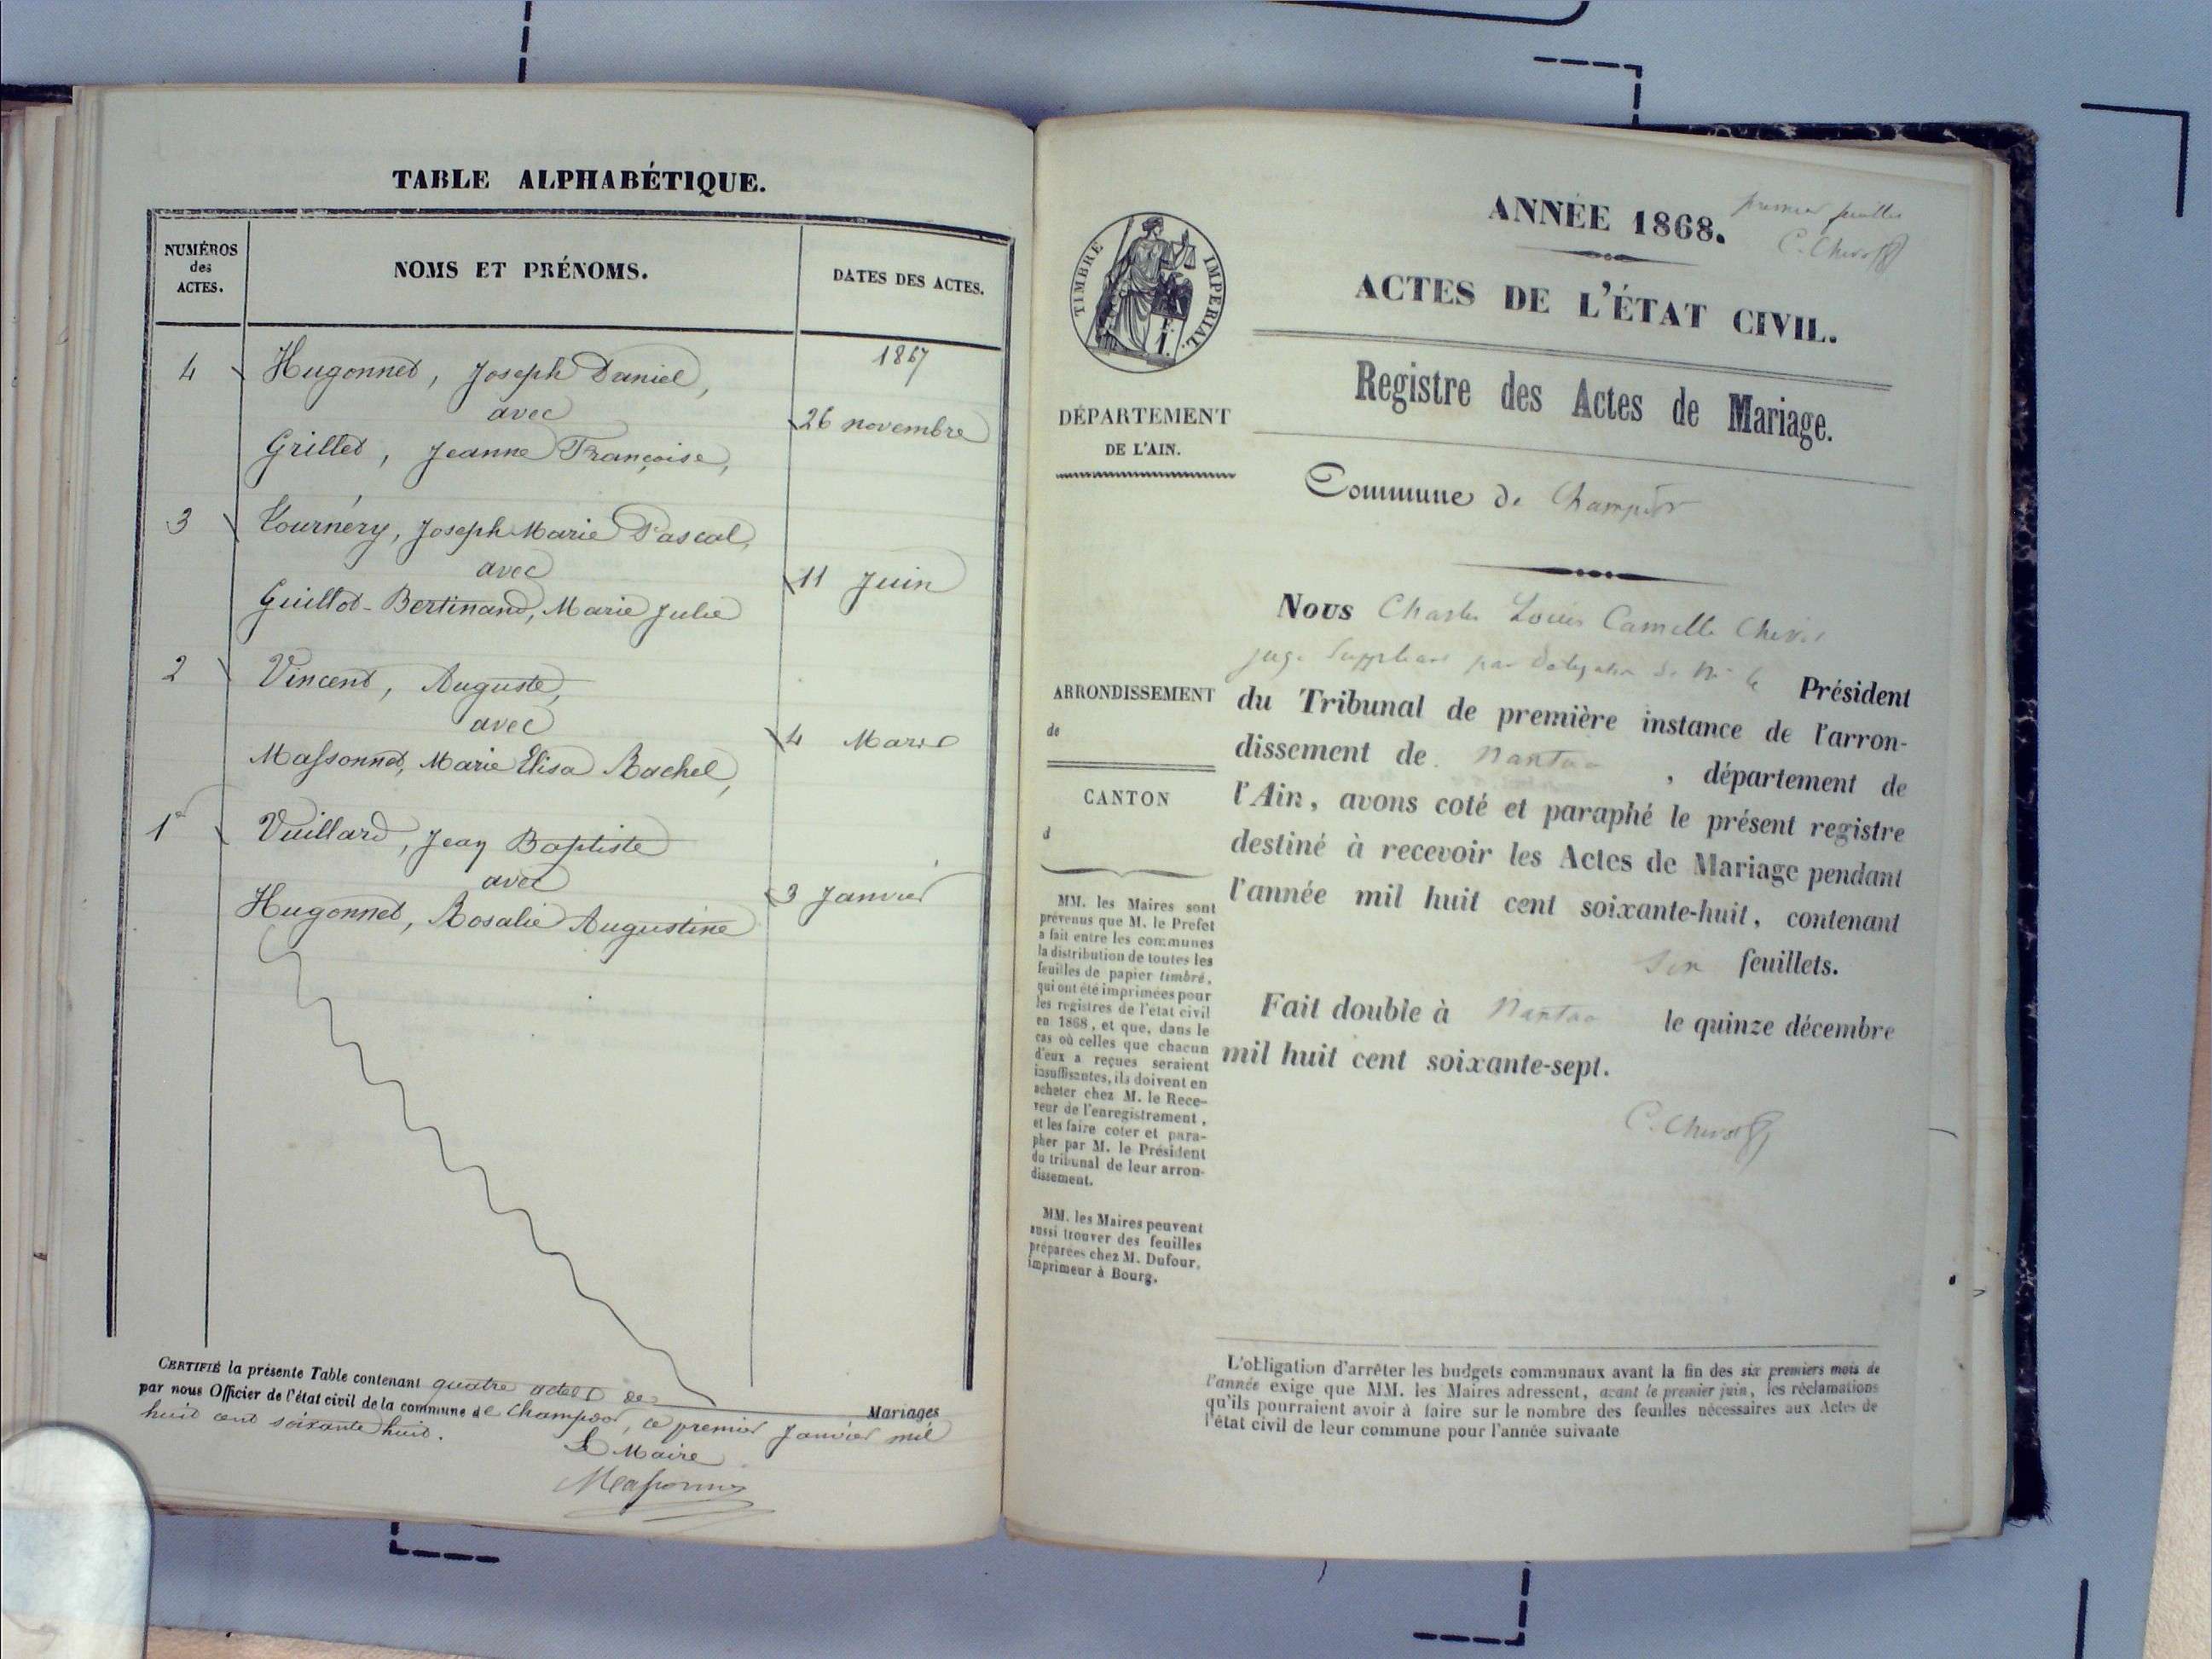 TABLE ALPHABÉTIQUE.
NUMÉROS
des
ACTES.
NOMS ET PRÉNOMS.
DATES DES ACTES.
1867
4 Hugonnet, Joseph Daniel,
avec
26 novembre
Grillet, Jeanne Françoise,
3 Tournéry, Joseph Marie Pascal,
avec
11 Juin
Guillot-Bertinand, Marie Julie
2 Vincent, Auguste,
avec
4 Mars
Massonnet, Marie Elisa Rachel,
1er Vuillard, Jean Baptiste
avec
3 Janvier
Hugonnet, Rosalie Augustine
CERTIFIÉ la présente Table contenant quatre actes de Mariages
par nous Officier de l'état civil de la commune de Champdor, ce premier Janvier mil
huit cent soixante huit.
Le Maire
Massonnet
TIMBRE IMPERIAL.
DÉPARTEMENT
DE L'AIN.
ARRONDISSEMENT
de
CANTON
d
MM. les Maires sont
prévenus que M. le Prefet
a fait entre les communes
la distribution de toutes les
feuilles de papier timbré,
qui ont été imprimées pour
les registres de l'état civil
en 1868, et que, dans le
cas où celles que chacun
d'eux a reçues seraient
insuffisantes, ils doivent en
acheter chez M. le Rece-
veur de l'enregistrement,
et les faire coter et para-
pher par M. le Président
du tribunal de leur arron-
dissement.
MM. les Maires peuvent
aussi trouver des feuilles
préparées chez M. Dufour,
imprimeur à Bourg.
premier feuillet
C. Chevot
ANNÉE 1868.
ACTES DE L'ÉTAT CIVIL.
Registre des Actes de Mariage.
Commune de Champdor
Nous Charles Louis Camille Chevot
juge Suppléant par délégation de Mr le Président
du Tribunal de première instance de l'arron-
dissement de Nantua, département de
l'Ain, avons coté et paraphé le présent registre
destiné à recevoir les Actes de Mariage pendant
l'année mil huit cent soixante-huit, contenant
six feuillets.
Fait double à Nantua le quinze décembre
mil huit cent soixante-sept.
C. Chevot
L'obligation d'arrêter les budgets communaux avant la fin des six premiers mois de
l'année exige que MM. les Maires adressent, avant le premier juin, les réclamations
qu'ils pourraient avoir à faire sur le nombre des feuilles nécessaires aux Actes de
l'état civil de leur commune pour l'année suivante